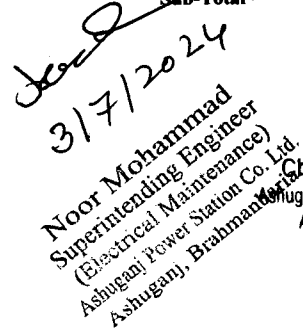 Sub-Total
3/7/2024
Noor Mohammad
Superintending Engineer
(Electrical Maintenance)
Ashuganj Power Station Co. Ltd.
Ashuganj, Brahmanbaria